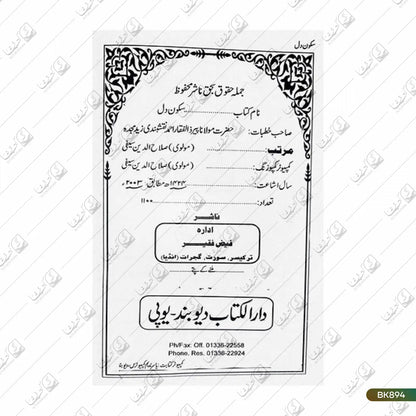 سکون دل
جملہ حقوق بحق ناشر محفوظ
نام کتاب ............ سکون دل
صاحب خطبات : حضرت مولانا پیر ذوالفقار احمد نقشبندی زید مجدہ
مرتب : (مولوی) صلاح الدین سیفی
کمپیوٹر کمپوزنگ : (مولوی) صلاح الدین سیفی
سال اشاعت : ۱۴۲۴ھ مطابق ۲۰۰۳ء
تعداد : ۱۱۰۰
ناشر
ادارہ
فیض فقیر
ترکیسر، سورت، گجرات (انڈیا)
ملنے کے پتے
دارالکتاب دیوبند-یوپی
Ph/Fax: Off. 01336-22558
Phone. Res. 01336-22924
BK894